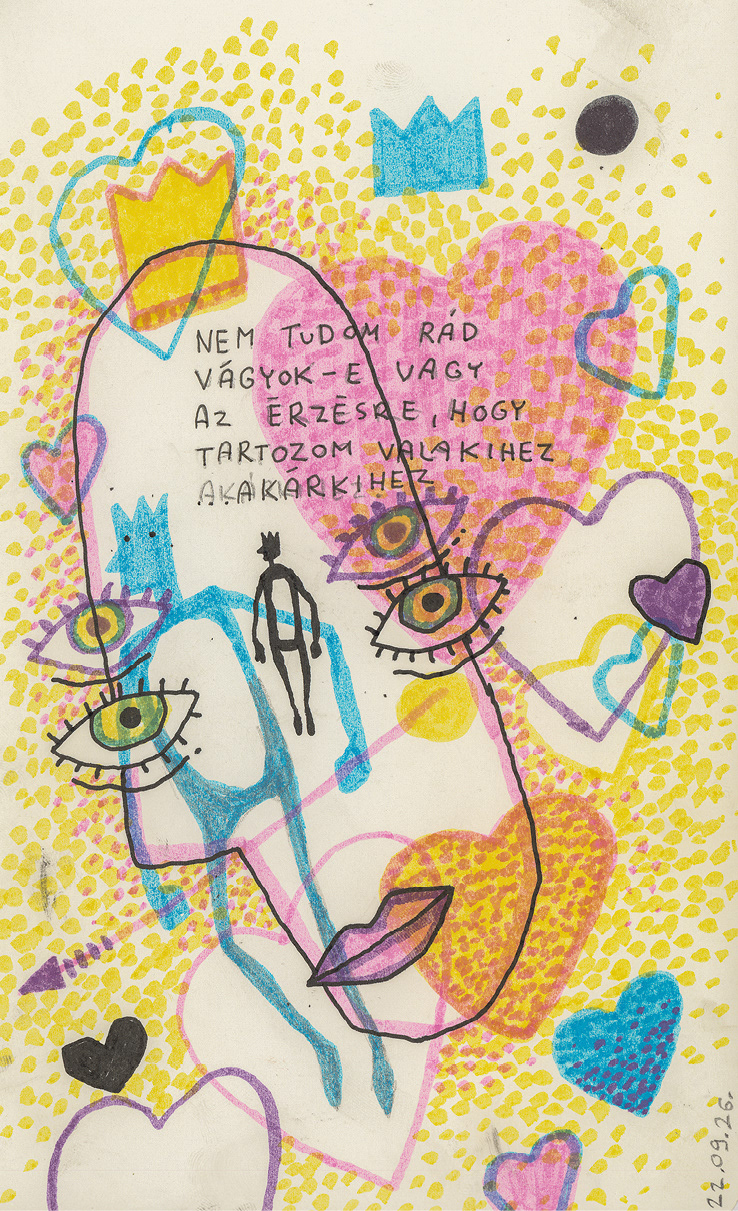 NEM TUDOM RÁD
VÁGYOK-E VAGY
AZ ÉRZÉSRE, HOGY
TARTOZOM VALAKIHEZ
AKÁRKIHEZ
22.09.26.